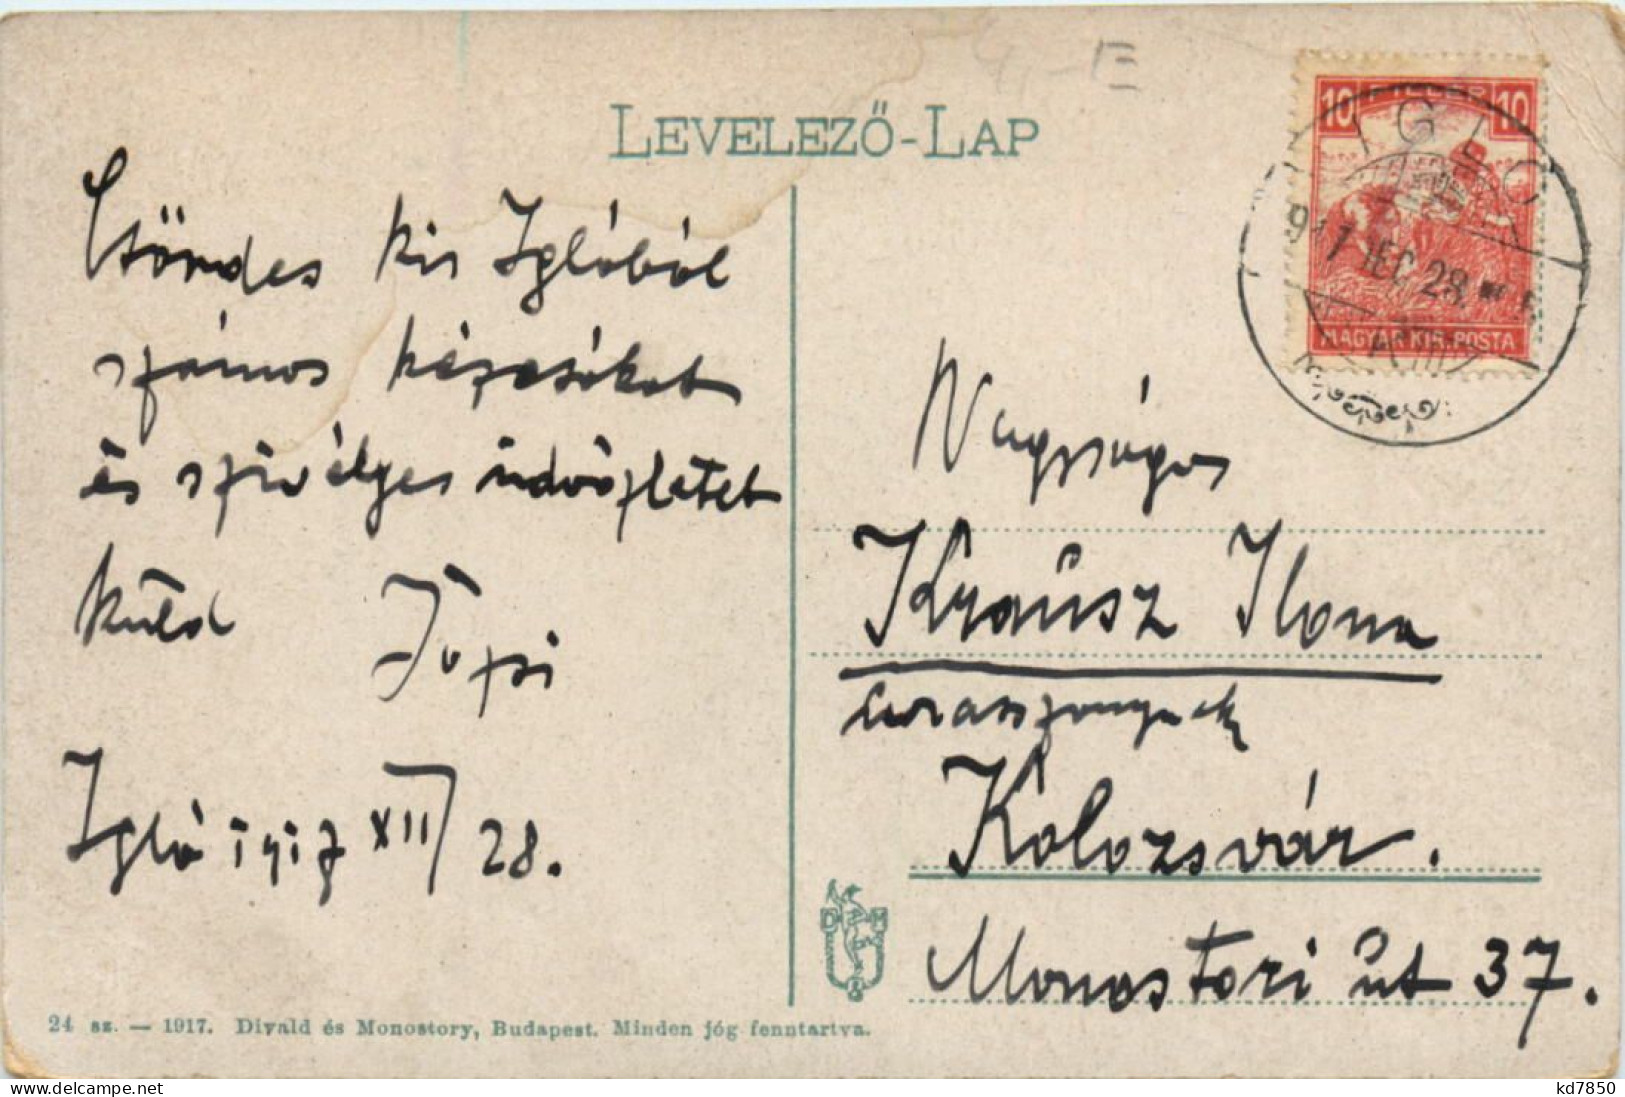 4,- E
LEVELEZŐ-LAP
10 FILLÉR 10
IGLÓ
917 DEC. 28.
MAGYAR KIR. POSTA
Csöndes kis Iglóból
számos kézcsókot
és szívélyes üdvözletet
küld Józsi
Igló 1917 XII/28.
Nagyságos
Krausz Ilona
urasszonynak
Kolozsvár.
Monostori út 37.
D M
24 sz. — 1917. Divald és Monostory, Budapest. Minden jóg fenntartva.
kd7850